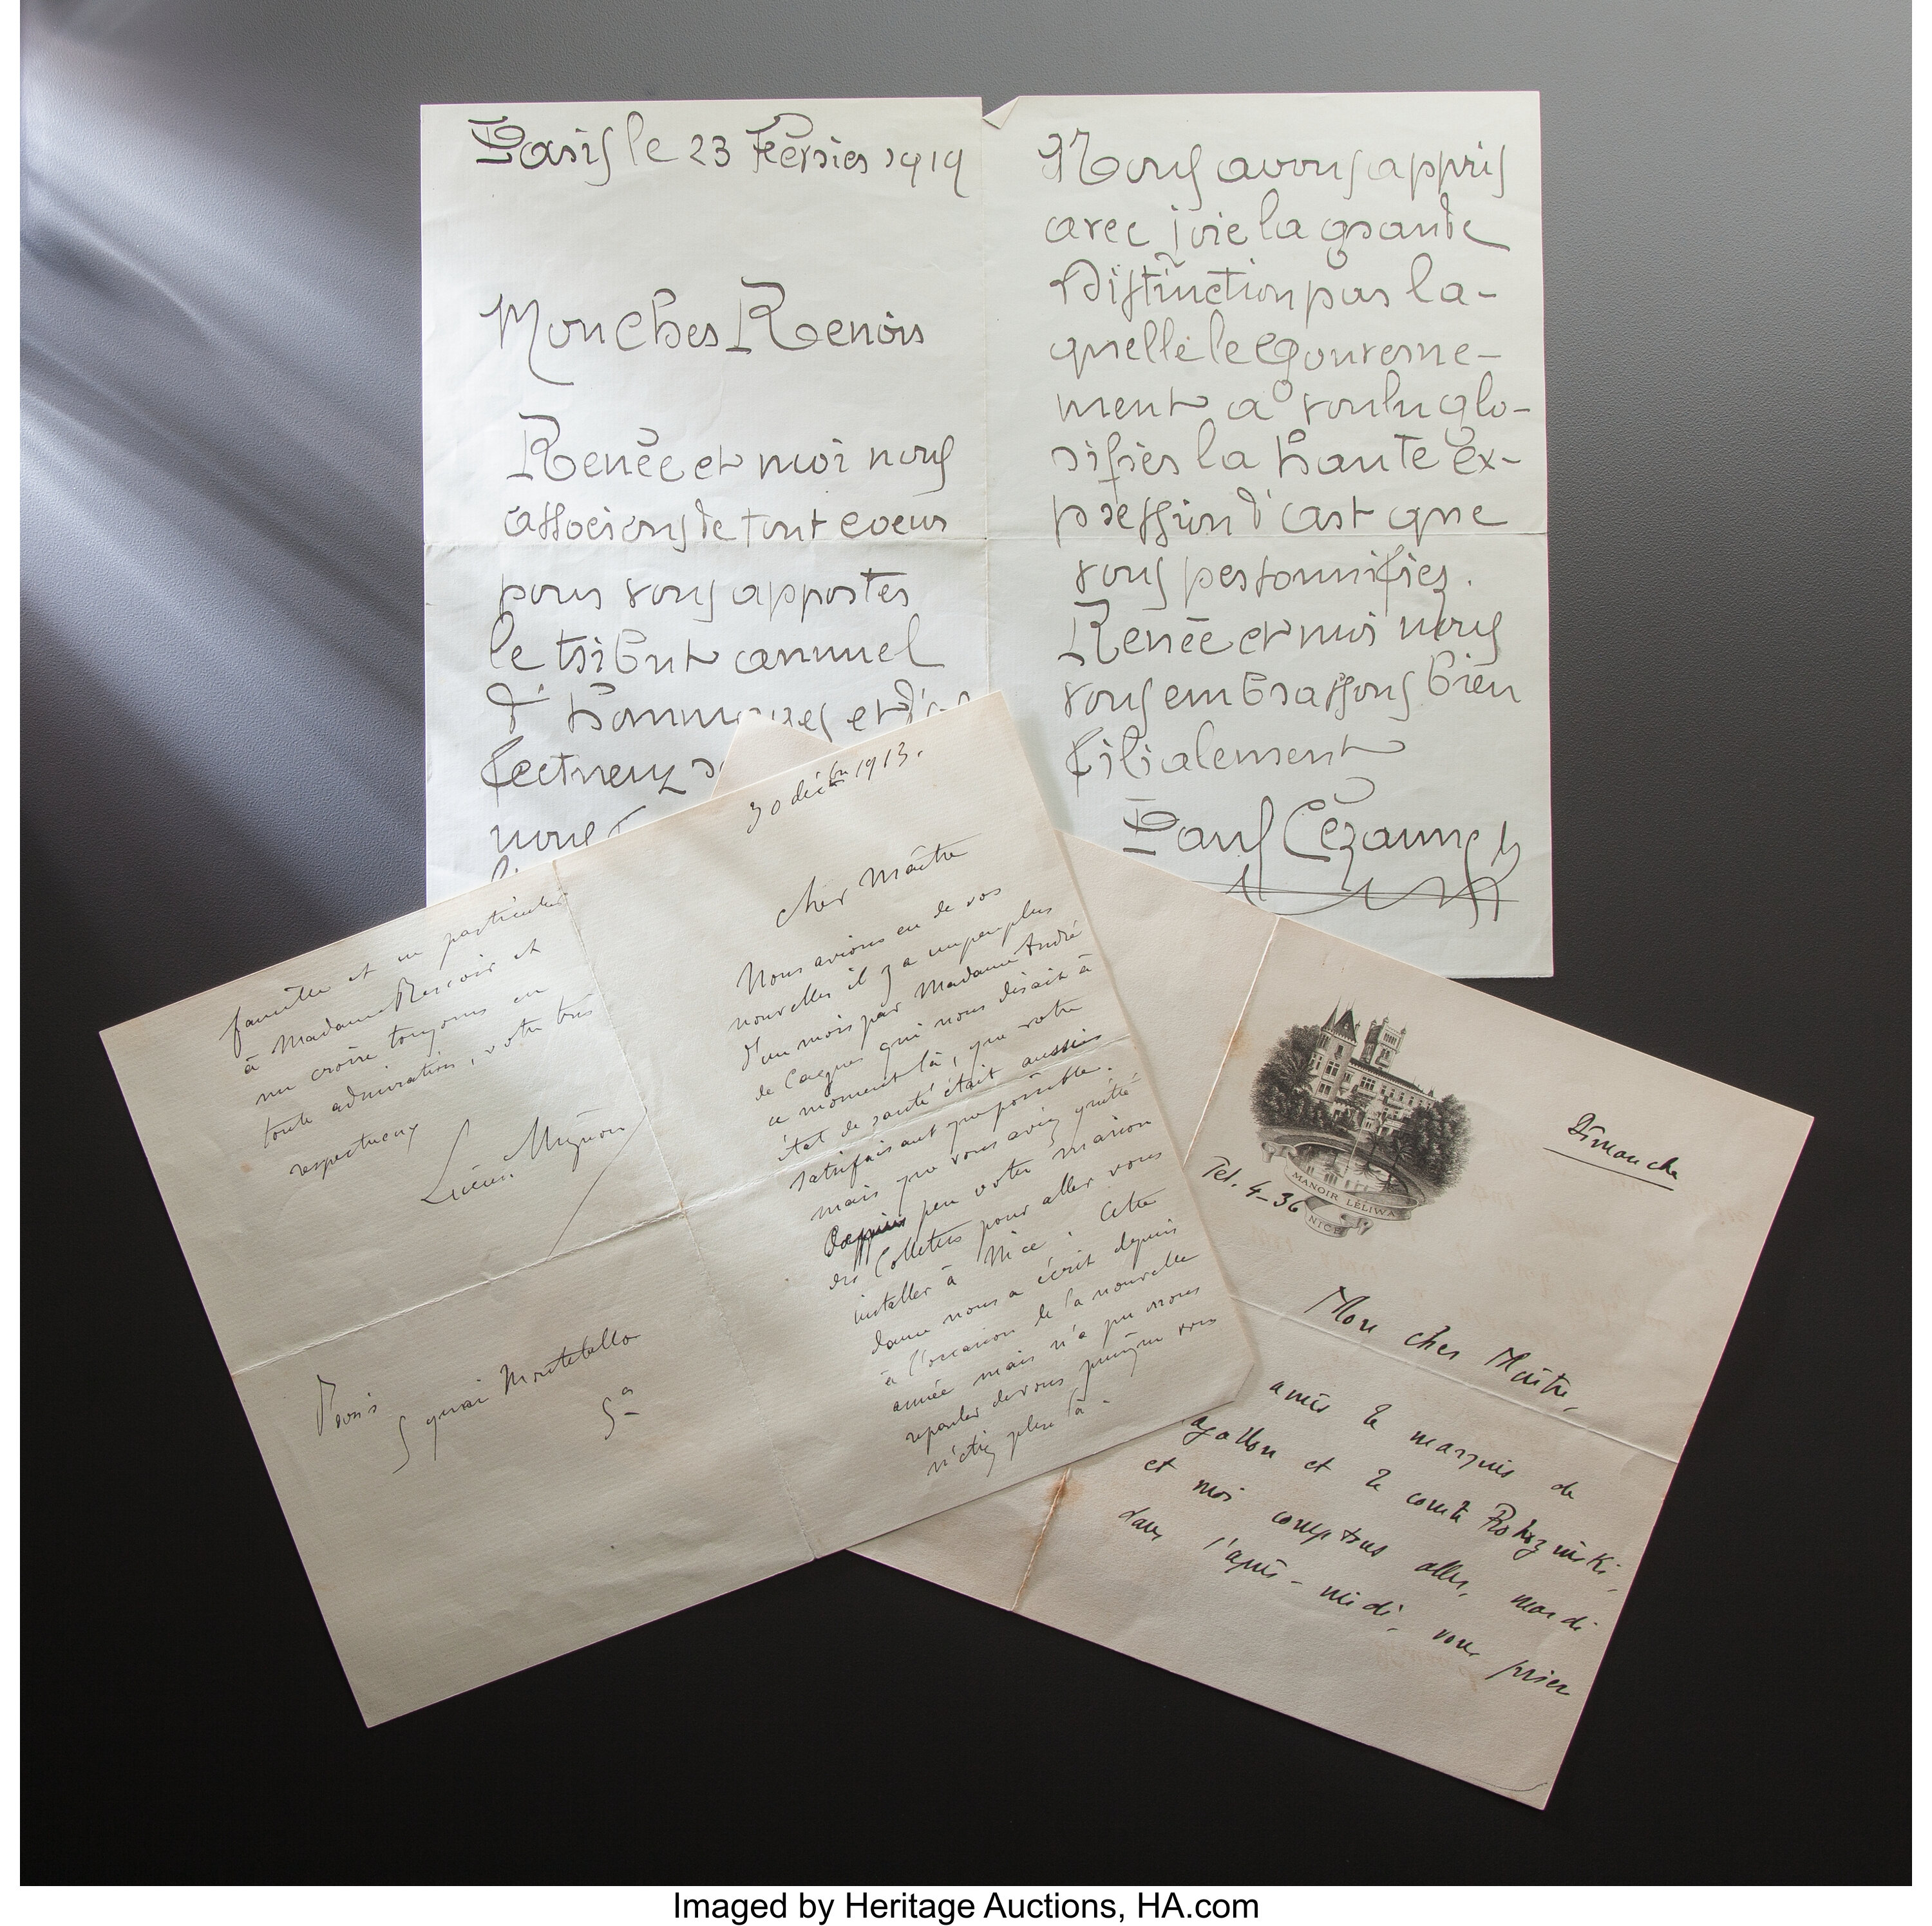 Paris le 23 Février 1919
Mon cher Renoir
Renée et moi nous
associons de tout coeur
pour vous apporter
le tribut annuel
d'hommages et d'af
fectueux
nous
Nous avons appris
avec joie la grande
distinction par la-
quelle le gouverne-
ment a voulu glo-
rifier la haute ex-
pression d'art que
vous personnifiez.
Renée et moi nous
vous embrassons bien
filialement
Paul Cézanne
famille et en particulier
à Madame Renoir et
me croire toujours en
toute admiration, votre très
respectueux
Lucien Mignon
Paris
5 quai Montebello
5e
30 décbre 1913.
Cher Maître
Nous avions eu de vos
nouvelles il y a un peu plus
d'un mois par Madame André
de Cagnes qui nous disait à
ce moment là, que votre
état de santé était aussi
satisfaisant que possible.
mais que vous aviez quitté
depuis peu votre maison
des Collettes pour aller vous
installer à Nice. Cette
dame nous a écrit depuis
à l'occasion de la nouvelle
année mais n'a pu nous
reparler de vous puisque vous
n'étiez plus là.
MANOIR LELIWA
NICE
Tel. 4-36
Dimanche
Mon cher Maître,
amis le marquis de
et le comte
et moi comptons aller, mardi
dans l'après-midi, vous prier
Imaged by Heritage Auctions, HA.com